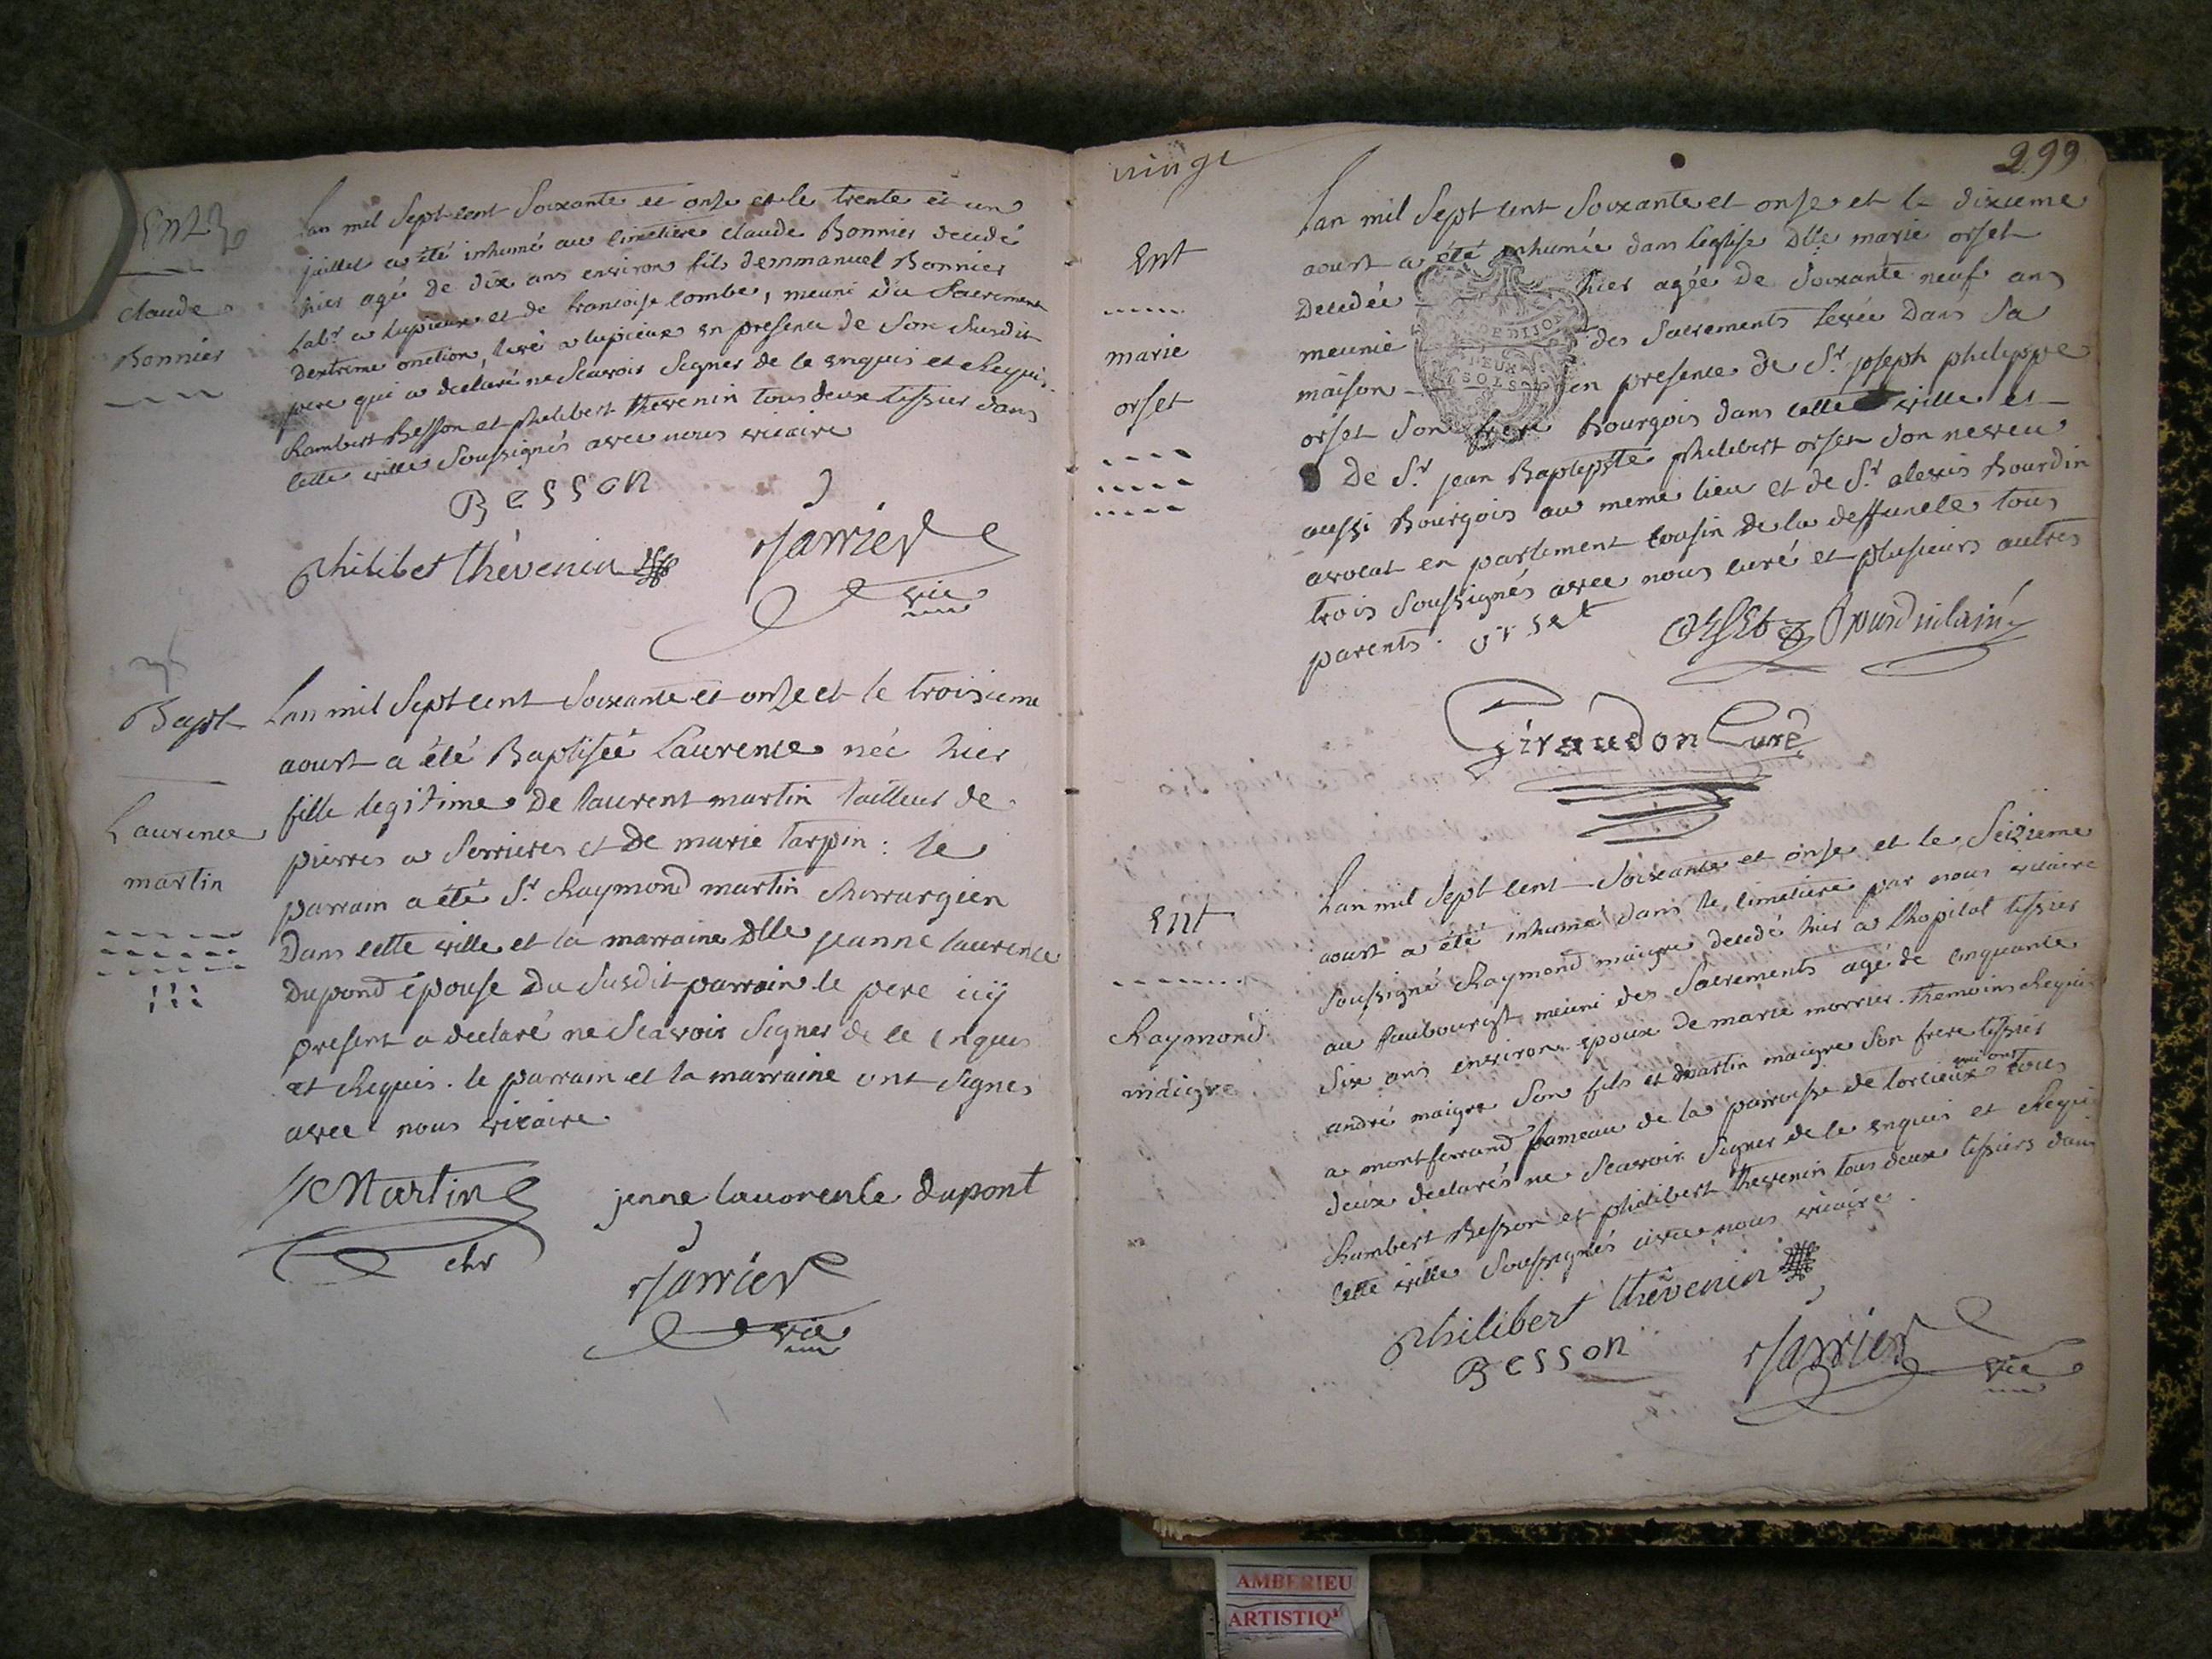 Ent
claude
Bonnier
Lan mil Sept cent Soixante et onze et le trente et un
juillet a été inhumé au cimetiere claude Bonnier decedé
hier agé de dix ans environ fils demmanuel Bonnier
labr a lupieux et de francoise Combe, meuni du Sacrement
dextreme onction, levé a lupieux en presence de Son Susdit
pere qui a declaré ne Scavoir Signer de ce enquis et Requis.
Rambert Besson et philibert thevenin tous deux tissier dans
cette ville Soussignés avec nous vicaire
Besson
Philibet thévenin
Jarrier
vic
Bapt
Laurence
martin
Lan mil Sept cent Soixante et onze et le troisieme
aoust a été Baptisée Laurence née hier
fille legitime de laurent martin tailleur de
pierres a Serrieres et de marie tarpin : le
parrain a été Sr Raymond martin chirurgien
Dans cette ville et la marraine dlle jeanne laurence
Dupond epouse Du Susdit parrain le pere icy
present a declaré ne Scavoir Signer de ce enquis
et Requis. le parrain et la marraine ont Signés
avec nous vicaire
Martin
chr
jenne lauorence dupont
Jarrier
vic
vingt
299
Ent
marie
orset
Lan mil Sept cent Soixante et onze et le dixieme
aoust a été inhumée dans leglise Dlle marie orset
Decedée hier agée de Soixante neuf ans
meunie des Sacrements levée Dans Sa
maison en presence de Sr joseph philippe
orset Son frere Bourgois dans cette ville et
De Sr jean Baptipste philibert orset Son neveu
aussi Bourgois au meme lieu et de Sr alexis Bourdin
avocat en parlement cousin de la deffuncte tous
trois Soussignés avec nous curé et plusieurs autres
parents. orset
orset Bourdin lainé
DE DIJON
DEUX
SOLS
Giraudon Curé
Ent
Raymond
maigre
Lan mil Sept cent Soixante et onze et le Seizieme
aoust a été inhumé dans le cimetiere par nous vicaire
Soussigné Raymond maigre decedé hier a lhopital tissier
au faubourgt, meuni des Sacrements agé de cinquante
Six ans environ epoux de marie morrier. themoins Requis
andré maigre Son fils et martin maigre Son frere tissier
a montferrand hameau de la parroisse de torcieux qui ont tous
deux declarés ne Scavoir Signer de ce enquis et Requis
Rambert Besson et philibert thevenin tous deux tissiers dans
cette ville Soussignés avec nous vicaire.
Philibert thevenin
Besson
Jarrier
vic
AMBERIEU
ARTISTIQ